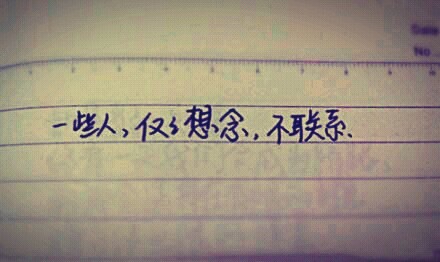 Date
No.
一些人，仅仅想念，不联系.